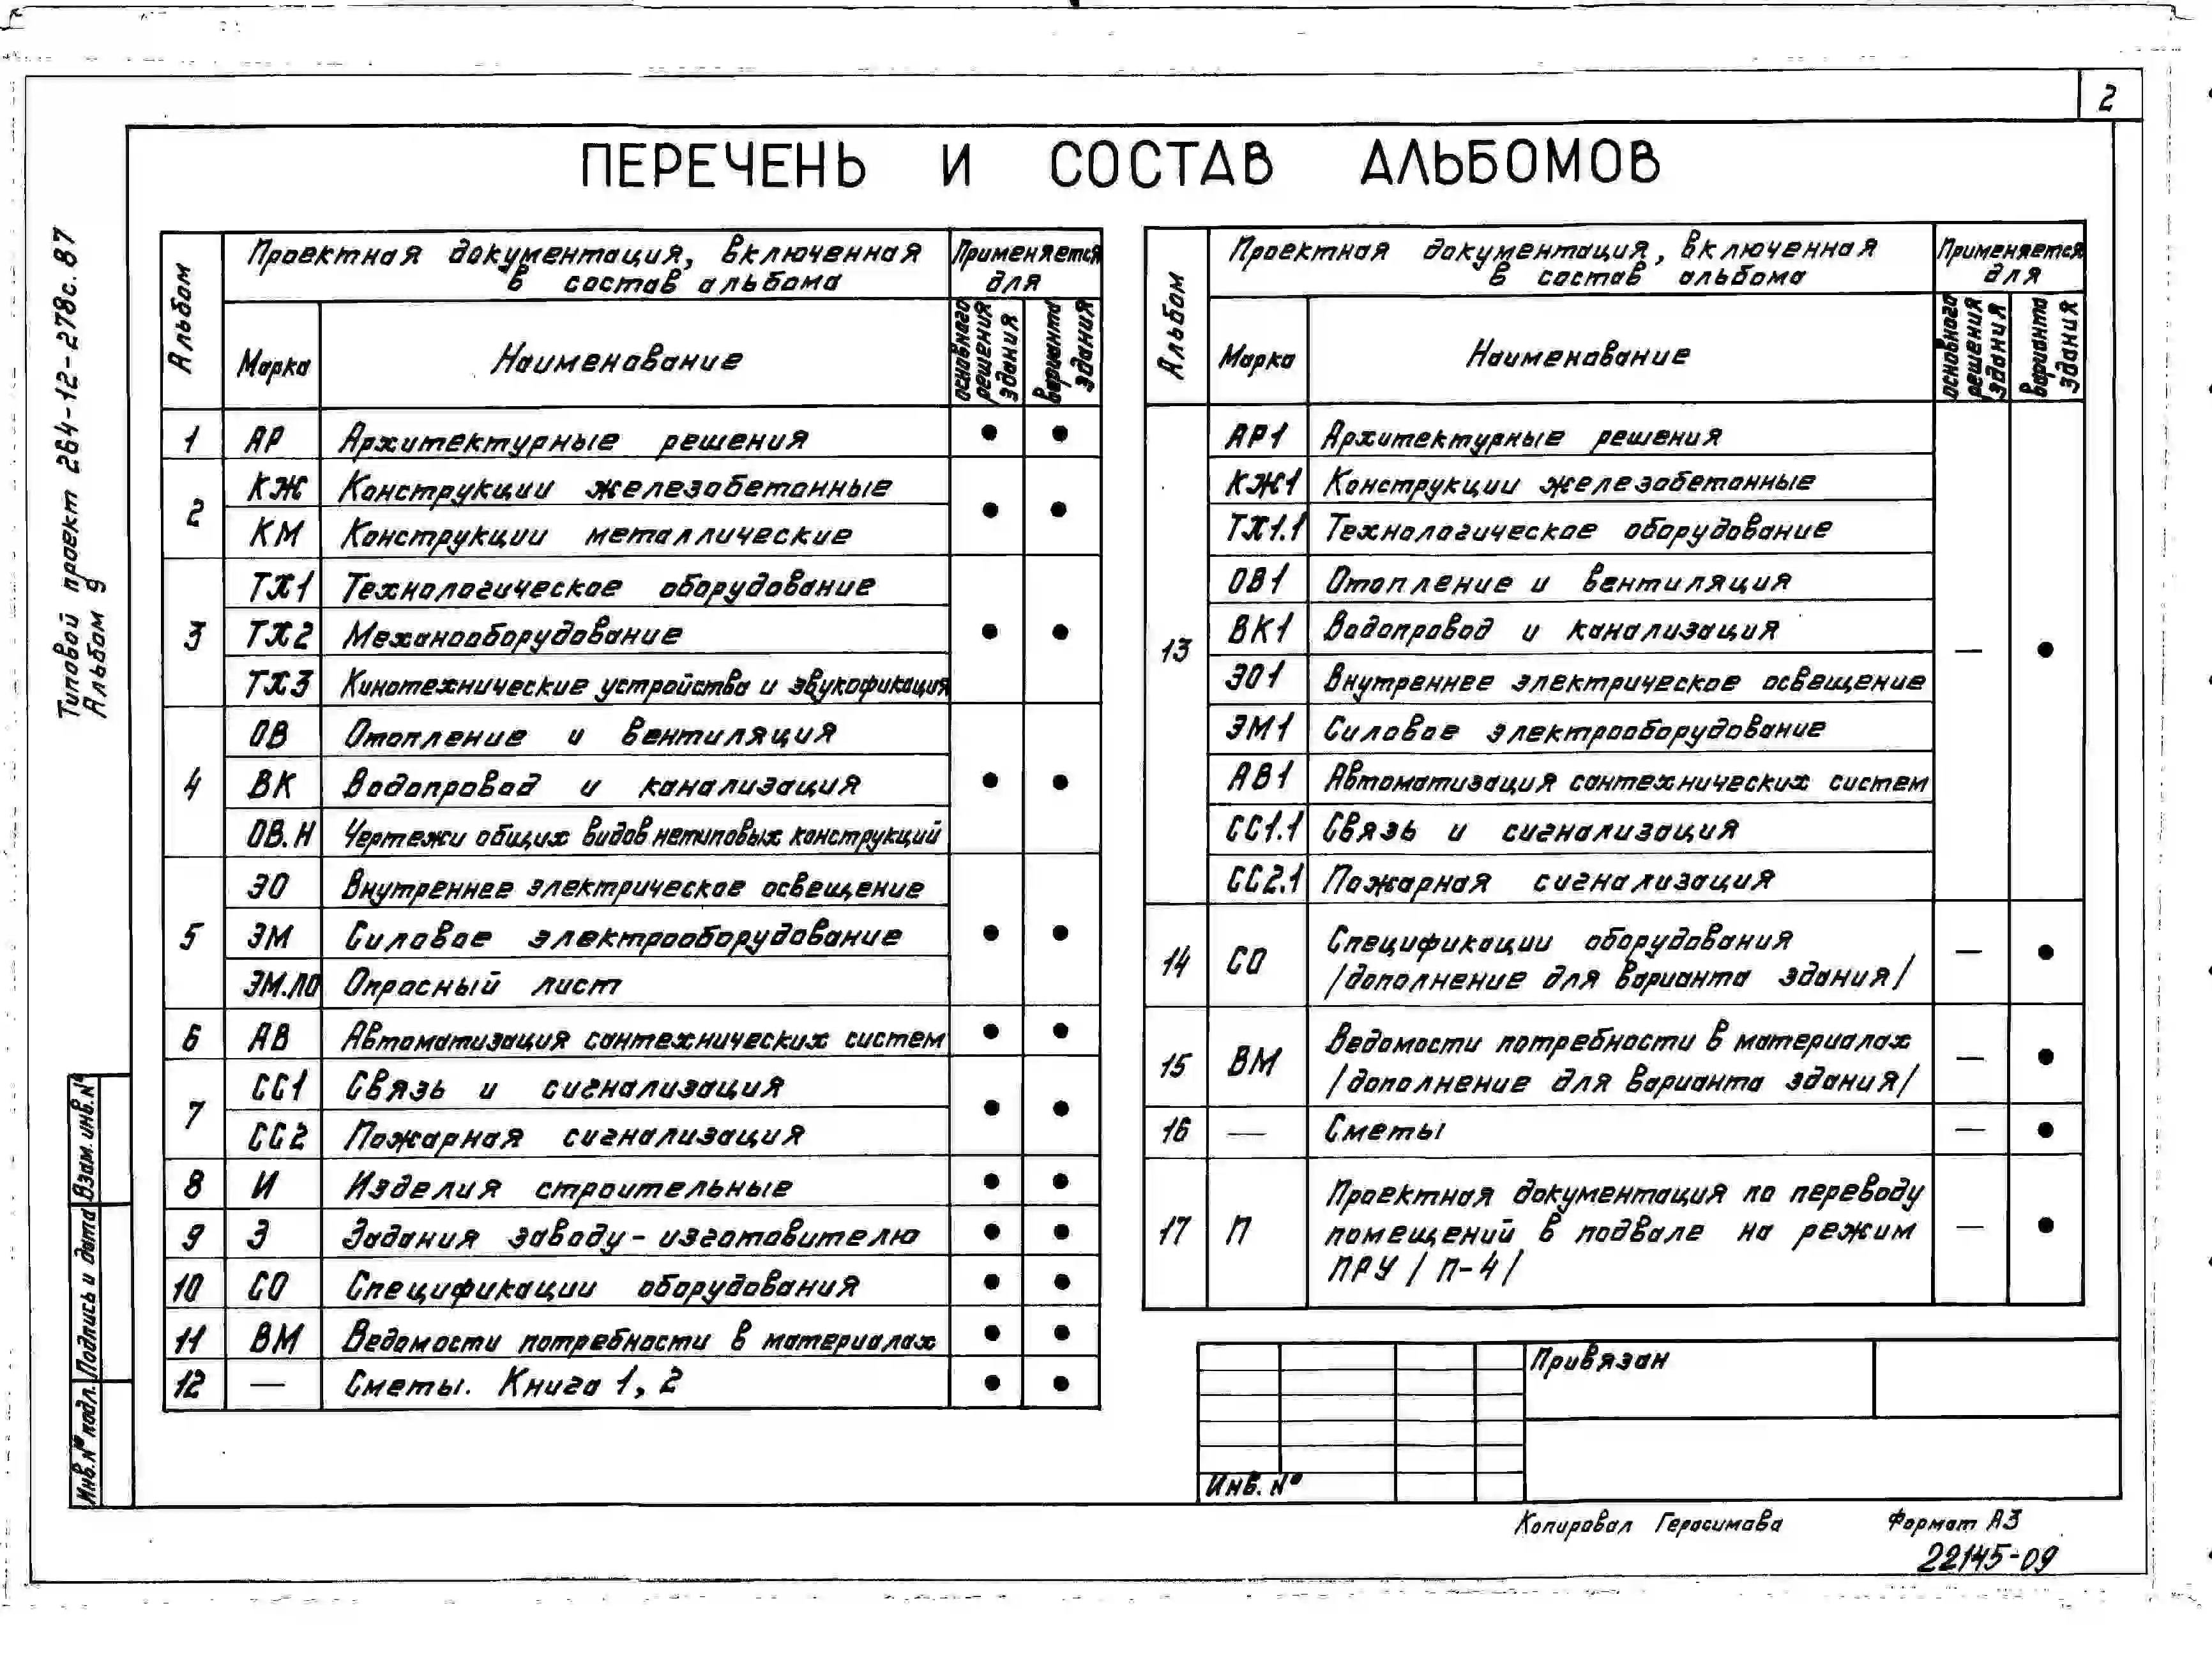 2
ПЕРЕЧЕНЬ И СОСТАВ АЛЬБОМОВ
Типовой проект 264-12-278с.87
Альбом 9
Альбом
Проектная документация, включенная
в состав альбома
Применяется
для
Марка
Наименование
основного
решения
здания
варианта
здания
1 АР Архитектурные решения ● ●
2 КЖ Конструкции железобетонные ● ●
КМ Конструкции металлические
3 ТХ1 Технологическое оборудование
ТХ2 Механооборудование ● ●
ТХ3 Кинотехнические устройства и звукофикация
4 ОВ Отопление и вентиляция
ВК Водопровод и канализация ● ●
ОВ.Н Чертежи общих видов нетиповых конструкций
5 ЭО Внутреннее электрическое освещение
ЭМ Силовое электрооборудование ● ●
ЭМ.ЛО Опросный лист
6 АВ Автоматизация сантехнических систем ● ●
7 СС1 Связь и сигнализация ● ●
СС2 Пожарная сигнализация
8 И Изделия строительные ● ●
9 З Задания заводу-изготовителю ● ●
10 СО Спецификации оборудования ● ●
11 ВМ Ведомости потребности в материалах ● ●
12 — Сметы. Книга 1, 2 ● ●
Альбом
Проектная документация, включенная
в состав альбома
Применяется
для
Марка
Наименование
основного
решения
здания
варианта
здания
АР1 Архитектурные решения
КЖ1 Конструкции железобетонные
ТХ1.1 Технологическое оборудование
ОВ1 Отопление и вентиляция
ВК1 Водопровод и канализация
13 — ●
ЭО1 Внутреннее электрическое освещение
ЭМ1 Силовое электрооборудование
АВ1 Автоматизация сантехнических систем
СС1.1 Связь и сигнализация
СС2.1 Пожарная сигнализация
14 СО Спецификации оборудования — ●
/дополнение для варианта здания/
15 ВМ Ведомости потребности в материалах — ●
/дополнение для варианта здания/
16 — Сметы — ●
Проектная документация по переводу
17 П помещений в подвале на режим — ●
ПРУ / П-4/
Привязан
Инв. №
Взам. инв. №
Подпись и дата
Инв. № подл.
Копировал Герасимова Формат А3
22145-09